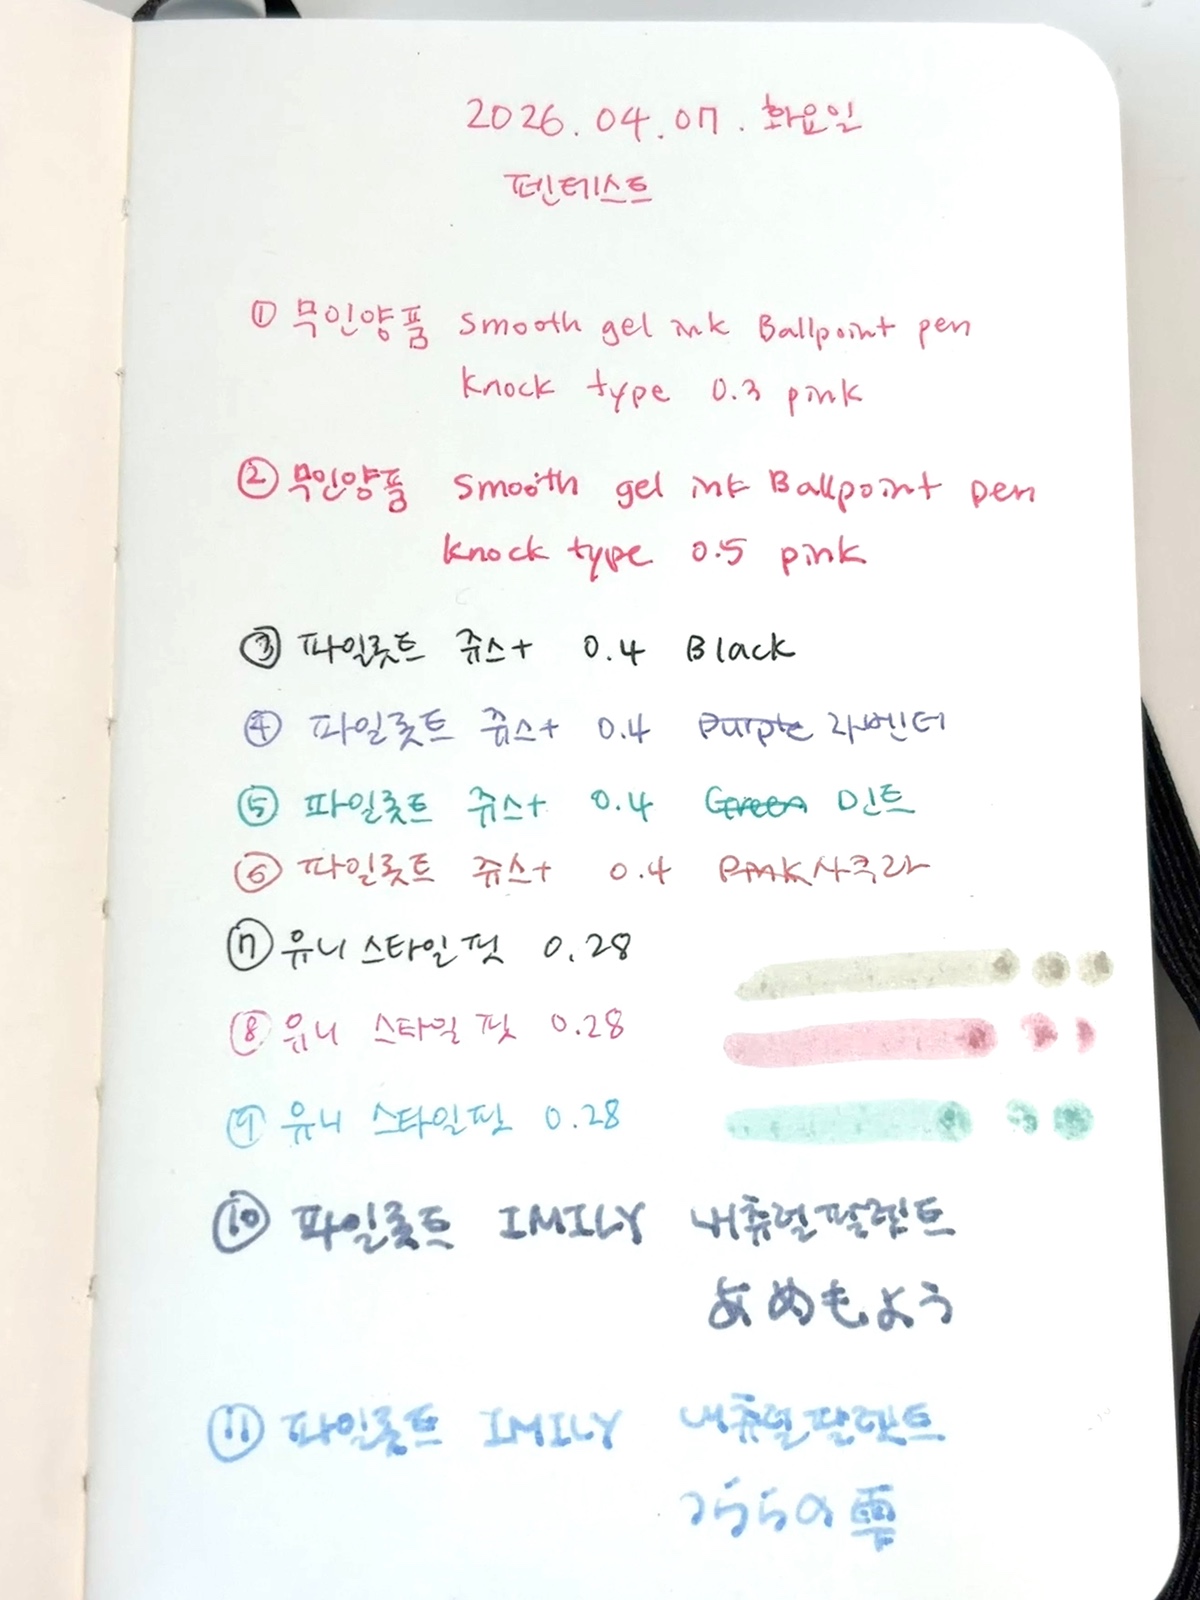 2026.04.07. 화요일
펜테스트
① 무인양품 smooth gel ink Ballpoint pen
knock type 0.3 pink
② 무인양품 smooth gel ink Ballpoint pen
knock type 0.5 pink
③ 파일롯트 쥬스+ 0.4 Black
④ 파일롯트 쥬스+ 0.4 Purple 라벤더
⑤ 파일롯트 쥬스+ 0.4 Green 민트
⑥ 파일롯트 쥬스+ 0.4 Pink 사쿠라
⑦ 유니 스타일핏 0.28
⑧ 유니 스타일핏 0.28
⑨ 유니 스타일핏 0.28
⑩ 파일롯트 IMILY 내츄럴팔레트
あめもよう
⑪ 파일롯트 IMILY 내츄럴팔레트
つららの雫